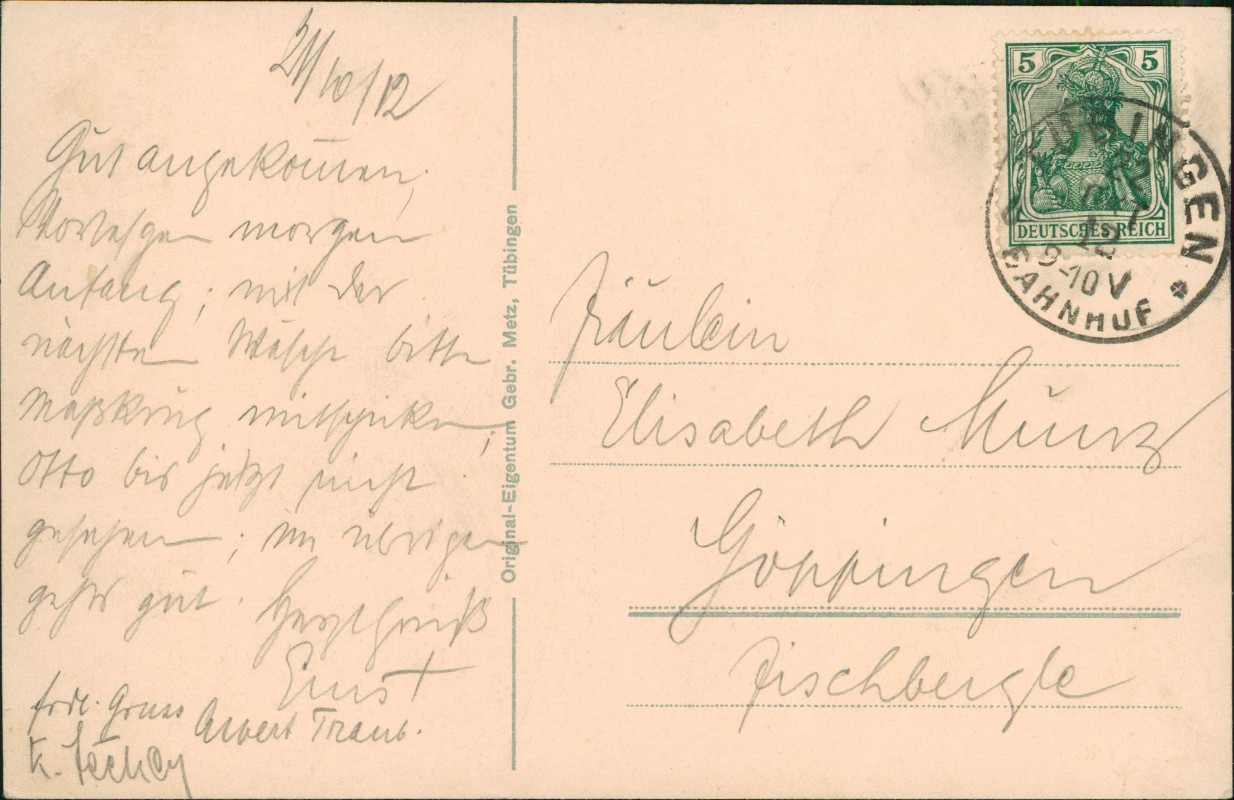 21/10/12
Gut angekommen;
Vorlesgen morgen
Anfang; mit der
nächsten Wäsche bitte
Maßkrug mitschicken;
Otto bis jetzt nicht
gesehen; im übrigen
gehts gut. Herzl Gruß
Ernst
frdl. Gruss Albert Traub.
K.
Original-Eigentum Gebr. Metz, Tübingen
5 5
DEUTSCHES REICH
TÜBINGEN
22
OKT
12
9-10V
BAHNHOF
Fräulein
Elisabeth Munz
Göppingen
Fischbergle